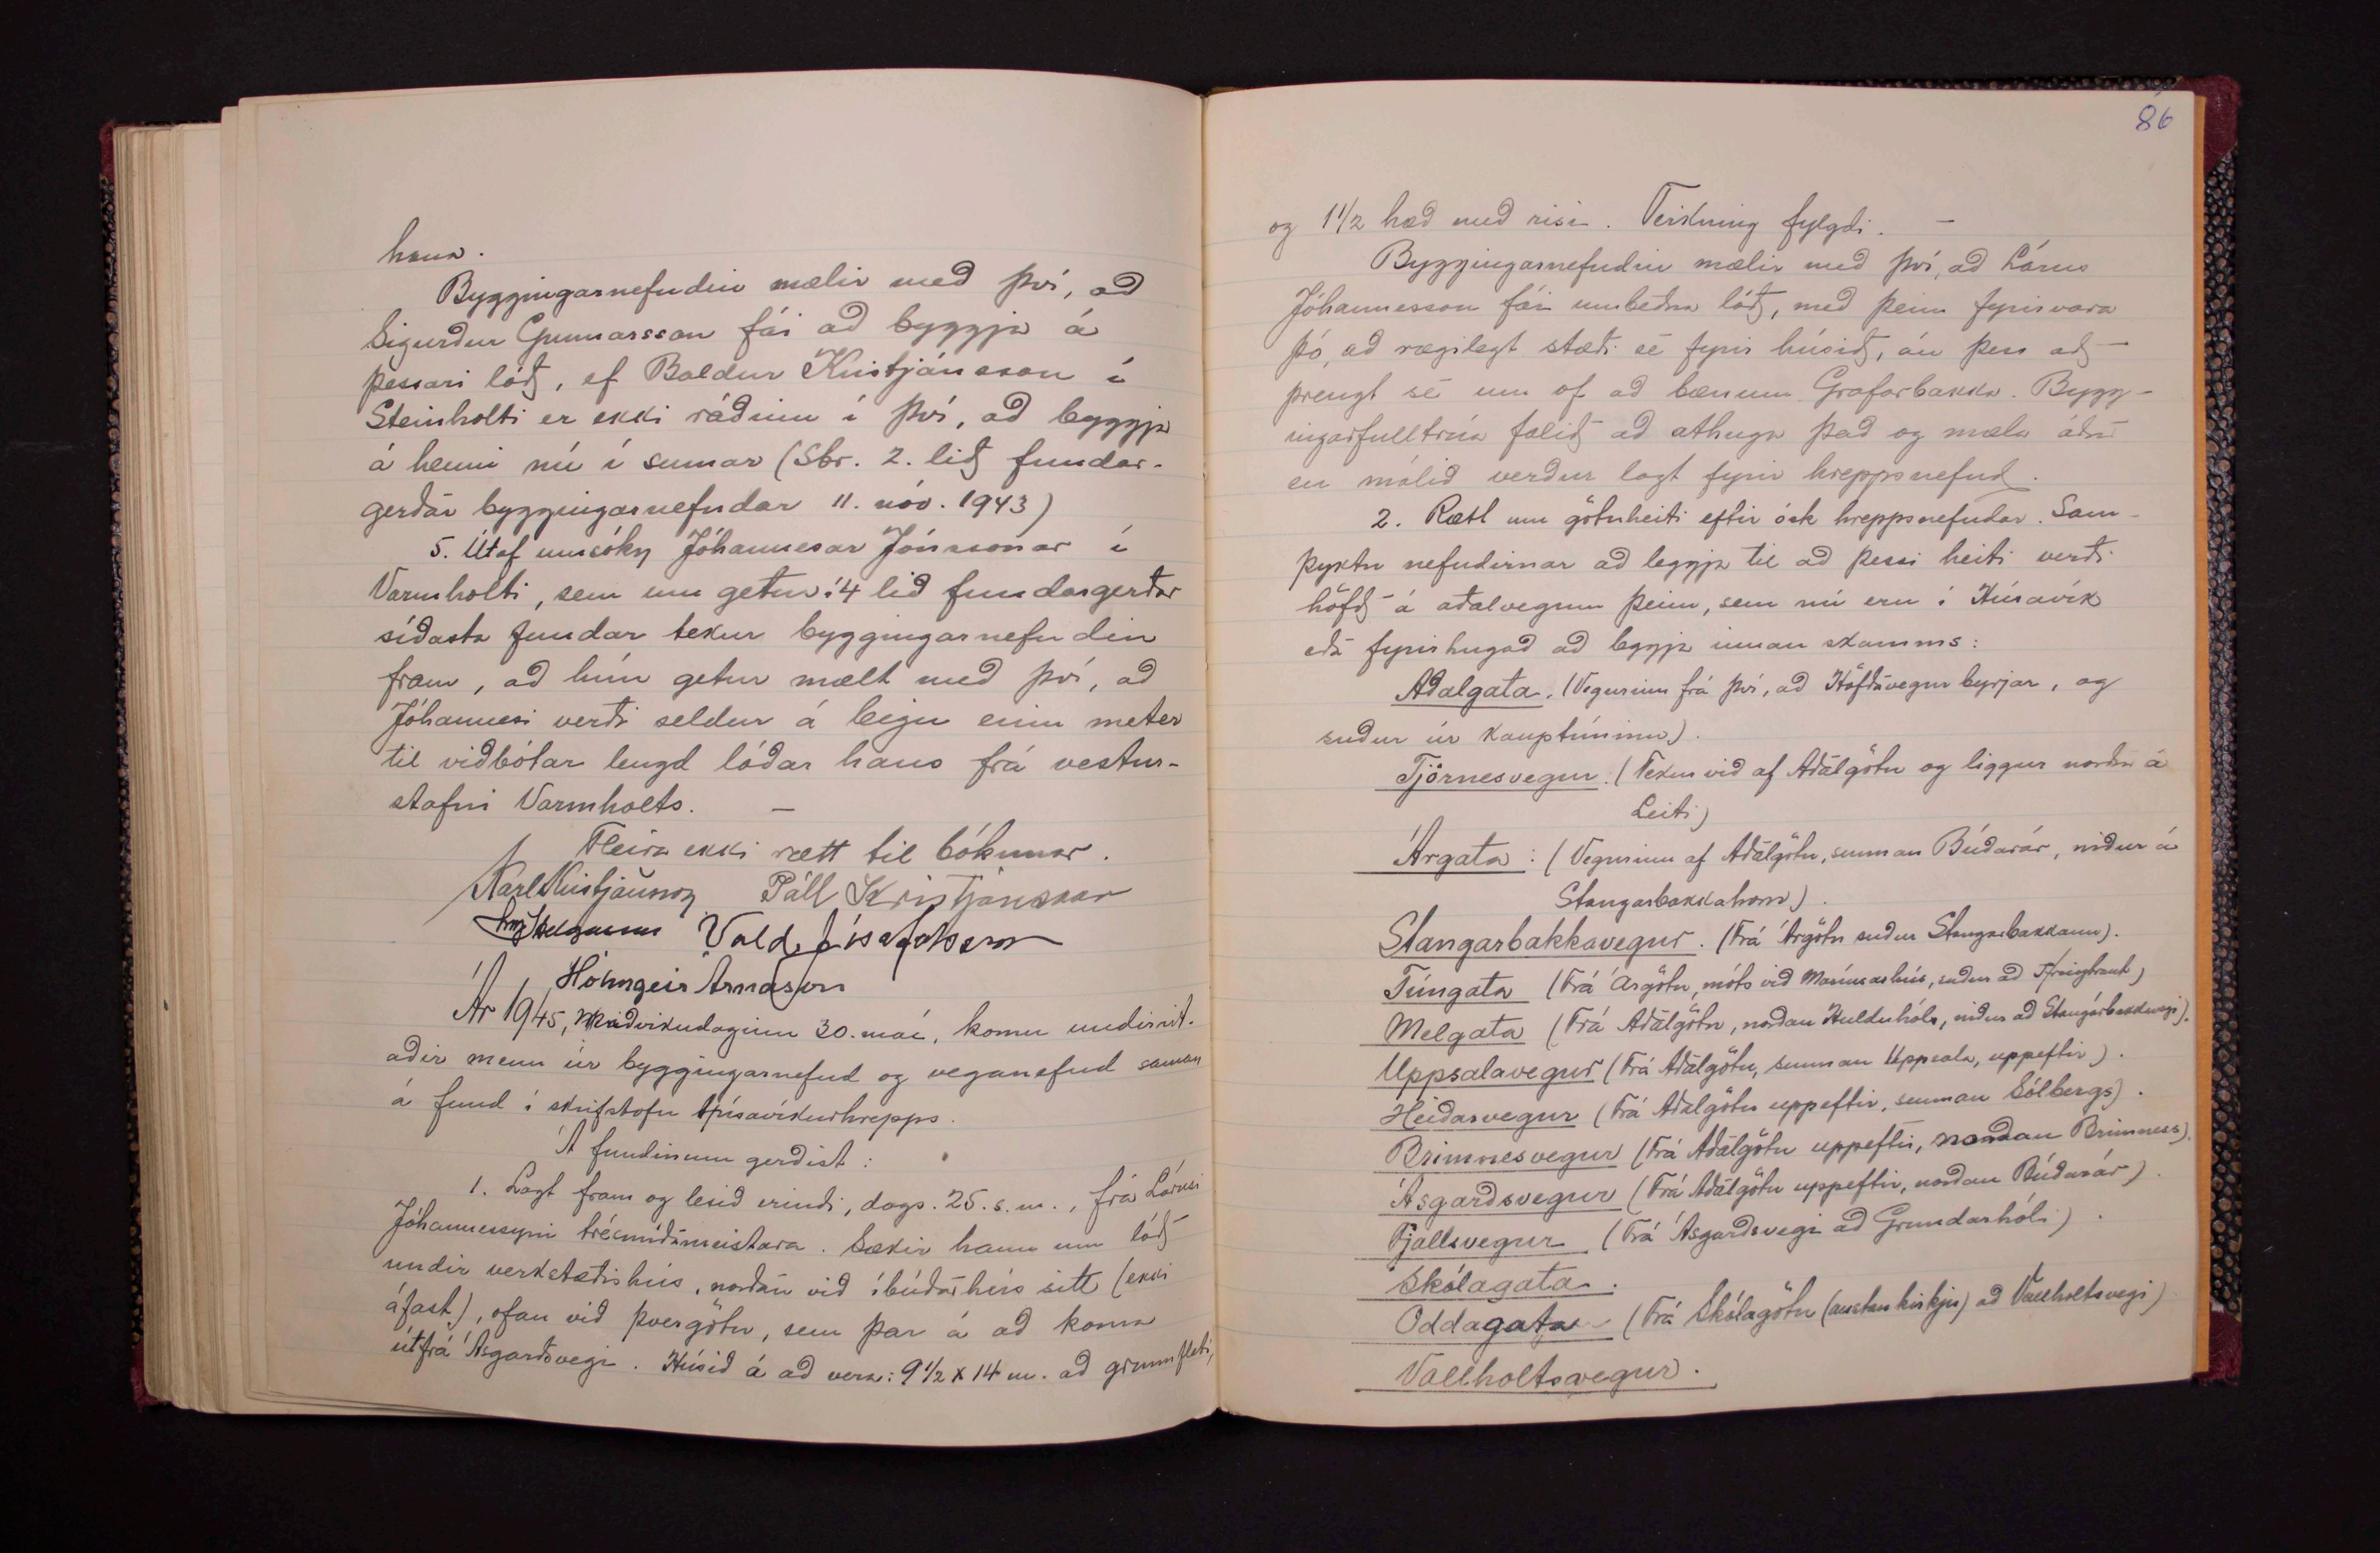 hana.
Byggingarnefndin mælir með því, að
Sigurður Gunnarsson fái að byggja á
þessari lóð, ef Baldur Kristjánsson í
Steinholti er ekki ráðinn í því, að byggja
á henni nú í sumar (Sbr. 2. lið fundar-
gerðar byggingarnefndar 11. nóv. 1943)
5. Útaf umsókn Jóhannesar Jónssonar í
Varmholti, sem um getur í 4 lið fundargerðar
síðasta fundar tekur byggingarnefndin
fram, að hún getur mælt með því, að
Jóhannesi verði seldur á leigu einn meter
til viðbótar lengd lóðar hans frá vestur-
stafni Varmholts. —
Fleira ekki rætt til bókunar.
Karl Kristjánsson Páll Kristjánsson
Helgason Vald. Jósefsson
Hólmgeir Árnason
Ár 1945, Miðvikudaginn 30. maí, komu undirrit-
aðir menn úr byggingarnefnd og veganefnd saman
á fund í skrifstofu Húsavíkurhrepps.
Á fundinum gerðist:
1. Lagt fram og lesið erindi, dags. 25. s.m., frá Lárusi
Jóhannessyni trésmíðameistara. Sækir hann um lóð
undir verkstæðishús, norðan við íbúðarhús sitt (ekki
áfast), ofan við þvergötu, sem þar á að koma
útfrá Ásgarðsvegi. Húsið á að vera: 9 1/2 x 14 m. að grunnfleti,
86
og 1 1/2 hæð með risi. Teikning fylgdi. —
Byggingarnefndin mælir með því, að Lárus
Jóhannesson fái umbeðna lóð, með þeim fyrirvara
þó, að nægilegt stæði sé fyrir húsið, án þess að
þrengt sé um of að bænum Grafarbakka. Bygg-
ingarfulltrúa falið að athuga það og mæla áður
en málið verður lagt fyrir hreppsnefnd.
2. Rætt um götuheiti eftir ósk hreppsnefndar. Sam-
þyktu nefndirnar að leggja til að þessi heiti verði
höfð á aðalvegum þeim, sem nú eru í Húsavík
eða fyrirhugað að leggja innan skamms:
Aðalgata. (Vegurinn frá því, að Höfðavegur byrjar, og
suður úr kauptúninu).
Tjörnesvegur. (Tekur við af Aðalgötu og liggur norður á
Leiti)
Árgata: (Vegurinn af Aðalgötu, sunnan Búðarár, niður á
Stangarbakkahorn).
Stangarbakkavegur. (Frá Árgötu suður Stangarbakkann).
Túngata (Frá Árgötu, móts við Maríusarhús, suður að Hringbraut)
Melgata (Frá Aðalgötu, norðan Hulduhóls, niður að Stangarbakkavegi).
Uppsalavegur (Frá Aðalgötu, sunnan Uppsala, uppeftir).
Heiðarvegur (Frá Aðalgötu uppeftir, sunnan Sólbergs).
Brimnesvegur (Frá Aðalgötu uppeftir, norðan Brimness).
Ásgarðsvegur (Frá Aðalgötu uppeftir, norðan Búðarár).
Fjallsvegur (Frá Ásgarðsvegi að Grundarhóli).
Skólagata.
Oddagata (Frá Skólagötu (austan kirkju) að Vallholtsvegi)
Vallholtsvegur.